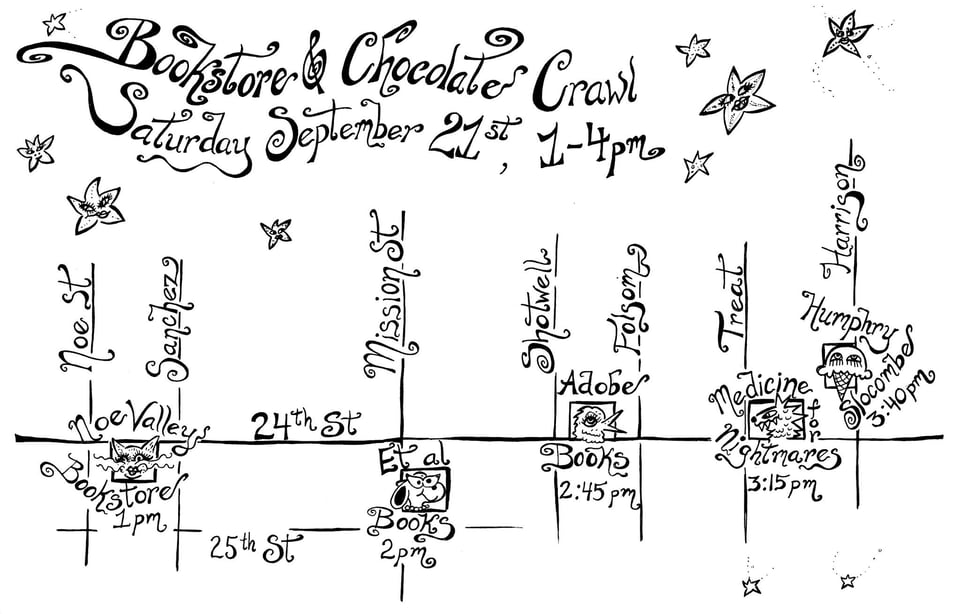 Bookstore & Chocolate Crawl
Saturday September 21st, 1-4pm
Noe St
Sanchez
Mission St
Shotwell
Folsom
Treat
Harrison
Noe Valley
Bookstore
1pm
24th St
25th St
Et al
Books
2pm
Adobe
Books
2:45pm
Medicine
for
Nightmares
3:15pm
Humphry
Slocombe
3:40pm